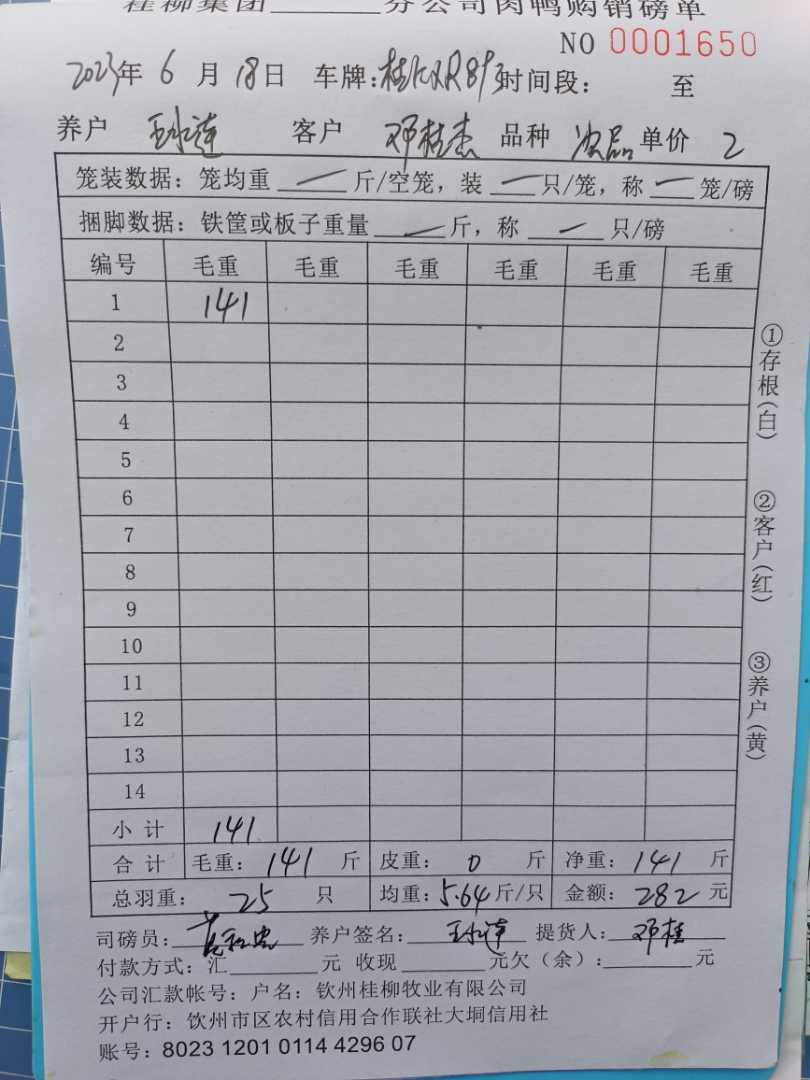 桂柳集团______分公司肉鸭购销磅单
NO 0001650
2023年 6 月 18日 车牌:桂 时间段: 至
养户 王水莲 客户 邓桂杰 品种 次品 单价 2
笼装数据: 笼均重 — 斤/空笼, 装 — 只/笼, 称 — 笼/磅
捆脚数据: 铁筐或板子重量 — 斤, 称 — 只/磅
编号 毛重 毛重 毛重 毛重 毛重 毛重
1 141
2
3
4
5
6
7
8
9
10
11
12
13
14
小计 141
合计 毛重: 141 斤 皮重: 0 斤 净重: 141 斤
总羽重: 25 只 均重: 5.64 斤/只 金额: 282 元
司磅员: 养户签名: 王水莲 提货人: 邓桂
付款方式: 汇______元 收现______元欠(余):______元
公司汇款帐号: 户名: 钦州桂柳牧业有限公司
开户行: 钦州市区农村信用合作联社大垌信用社
账号: 8023 1201 0114 4296 07
①存根(白)
②客户(红)
③养户(黄)